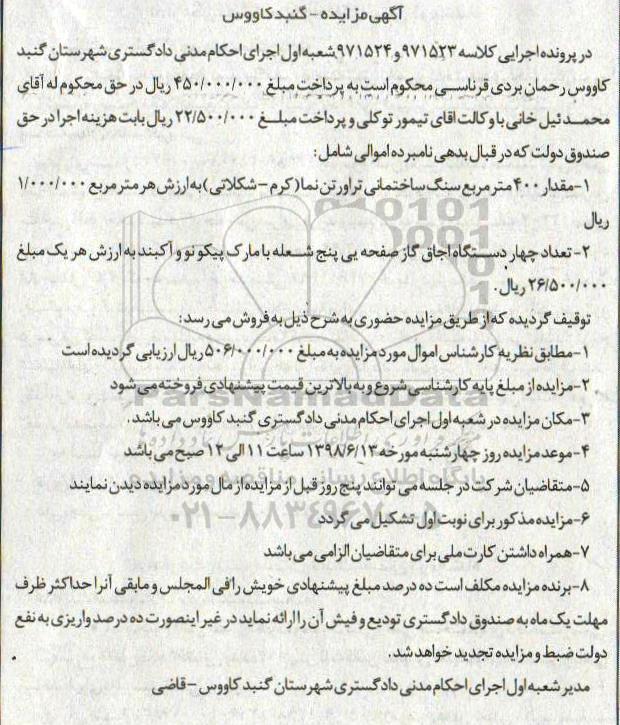 آگهی مزایده - گنبدکاووس
در پرونده اجرایی کلاسه ۹۷۱۵۲۳ و ۹۷۱۵۲۴ شعبه اول اجرای احکام مدنی دادگستری شهرستان گنبد
کاووس رحمان بردی قرناسی محکوم است به پرداخت مبلغ ۴۵۰/۰۰۰/۰۰۰ ریال در حق محکوم له آقای
محمد ئیل خانی با وکالت اقای تیمور توکلی و پرداخت مبلغ ۲۲/۵۰۰/۰۰۰ ریال بابت هزینه اجرا در حق
صندوق دولت که در قبال بدهی نامبرده اموالی شامل:
۱-مقدار ۴۰۰ متر مربع سنگ ساختمانی تراورتن نما (کرم - شکلاتی) به ارزش هر متر مربع ۱/۰۰۰/۰۰۰
ریال
۲- تعداد چهار دستگاه اجاق گاز صفحه یی پنج شعله با مارک پیکو نو و آکبند به ارزش هر یک مبلغ
۲۶/۵۰۰/۰۰۰ ریال.
توقیف گردیده که از طریق مزایده حضوری به شرح ذیل به فروش می رسد:
۱-مطابق نظریه کارشناس اموال مورد مزایده به مبلغ ۵۰۶/۰۰۰/۰۰۰ ریال ارزیابی گردیده است
۲-مزایده از مبلغ پایه کارشناسی شروع و به بالاترین قیمت پیشنهادی فروخته می شود
۳-مکان مزایده در شعبه اول اجرای احکام مدنی دادگستری گنبد کاووس می باشد.
۴-موعد مزایده روز چهارشنبه مورخه ۱۳۹۸/۶/۱۳ ساعت ۱۱ الی ۱۲ صبح می باشد
۵-متقاضیان شرکت در جلسه می توانند پنج روز قبل از مزایده از مال مورد مزایده دیدن نمایند
۶-مزایده مذکور برای نوبت اول تشکیل می گردد
۷-همراه داشتن کارت ملی برای متقاضیان الزامی می باشد
۸-برنده مزایده مکلف است ده درصد مبلغ پیشنهادی خویش را فی المجلس و مابقی آنرا حداکثر ظرف
مهلت یک ماه به صندوق دادگستری تودیع و فیش آن را ارائه نماید در غیر اینصورت ده درصد واریزی به نفع
دولت ضبط و مزایده تجدید خواهد شد.
مدیر شعبه اول اجرای احکام مدنی دادگستری شهرستان گنبد کاووس - قاضی
ParsNamadData
۰۲۱-۸۸۳۴۹۶۷۰-۵